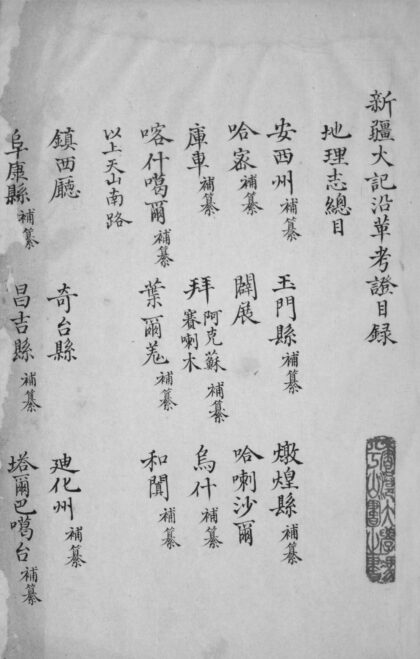 新疆大記沿革考證目録
地理志總目
安西州補纂　玉門縣補纂　燉煌縣補纂
哈宻補纂　闢展　哈喇沙爾
庫車補纂　拜阿克蘇賽喇木補纂　烏什補纂
喀什噶爾補纂　葉爾羗補纂　和闐補纂
以上天山南路
鎮西廳　奇台縣　廸化州補纂
阜康縣補纂　昌吉縣補纂　塔爾巴噶台補纂